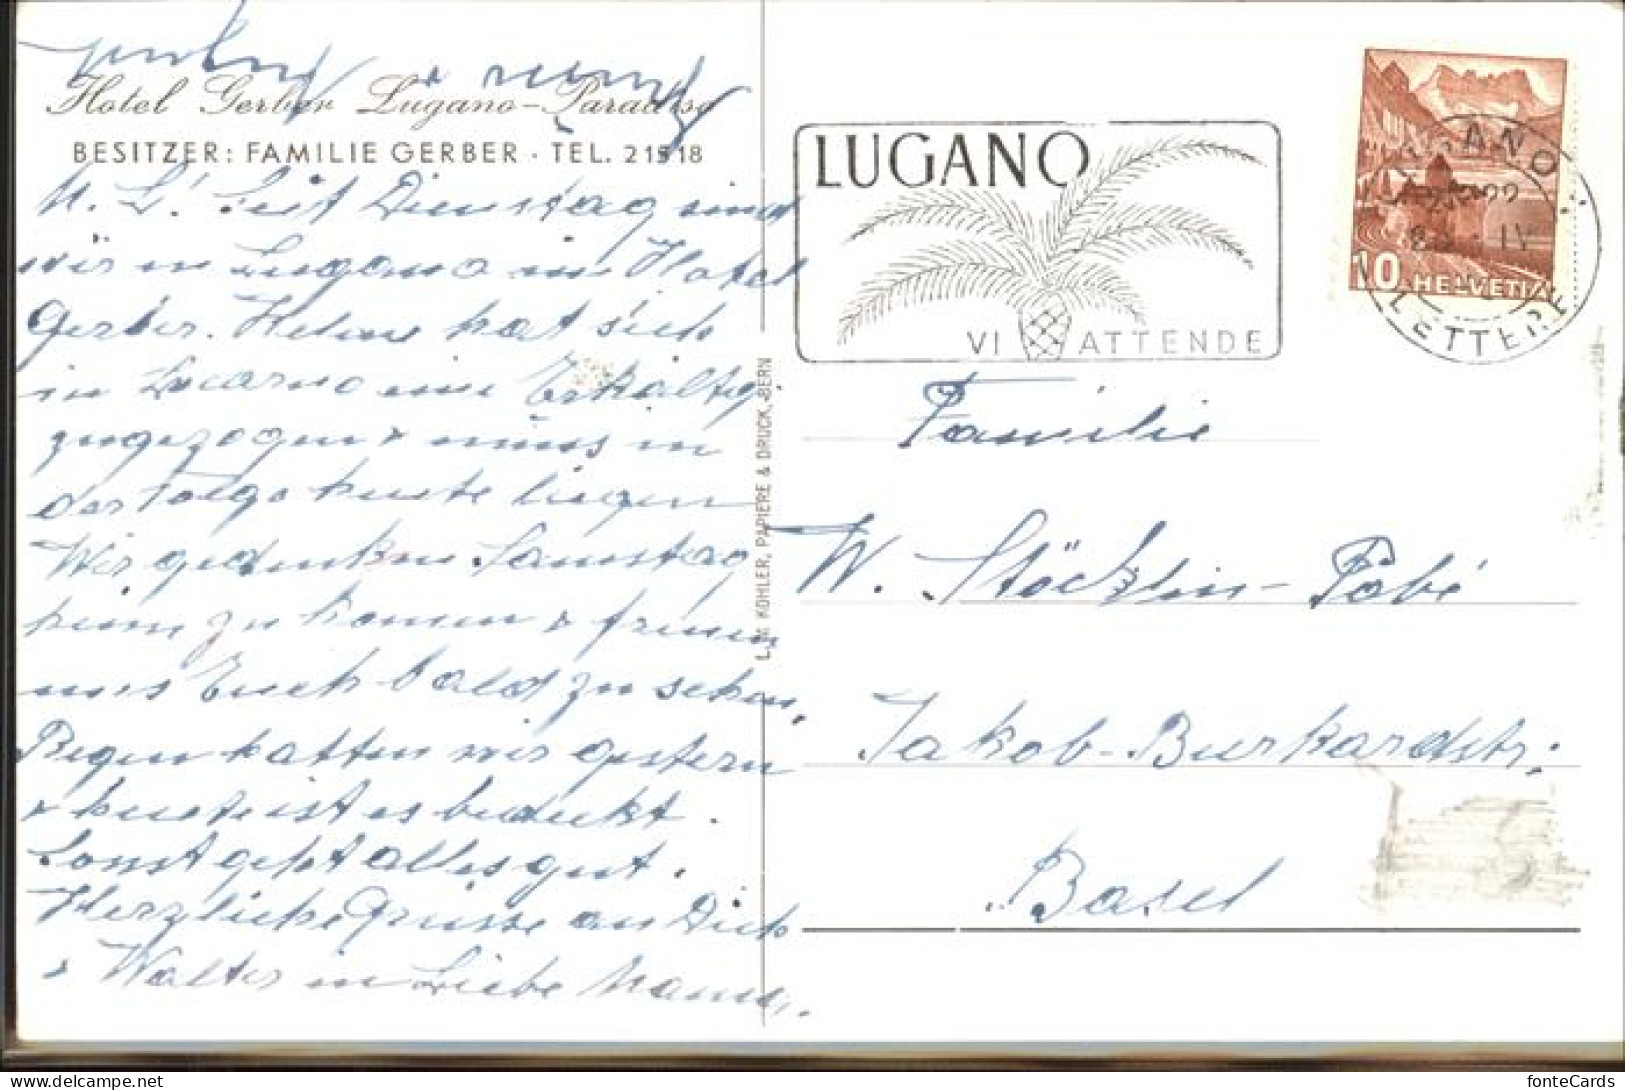 Hotel Gerber Lugano-Paradiso
BESITZER: FAMILIE GERBER · TEL. 21518
M. L! Seit Dienstag sind
wir in Lugano im Hotel
Gerber. Helene hat sich
in Locarno eine Erkältg
zugezogen & muss in
der Folge heute liegen
Wir gedenken Samstag
heim zu kommen & freuen
uns Euch bald zu sehen.
Regen hatten wir gestern
& heute ist es bedeckt.
Sonst geht alles gut.
Herzliche Grüsse an Dich
& Walter in Liebe Mama.
L. M. KOHLER, PAPIERE & DRUCK, BERN
LUGANO
VI ATTENDE
LUGANO
LETTERE
10 HELVETIA
Familie
W. Stöcklin-Fobé
Jakob-Burkardstr.
Basel
fonteCards